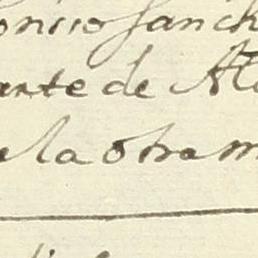 onsso sanch
ante de Al
e la otra m